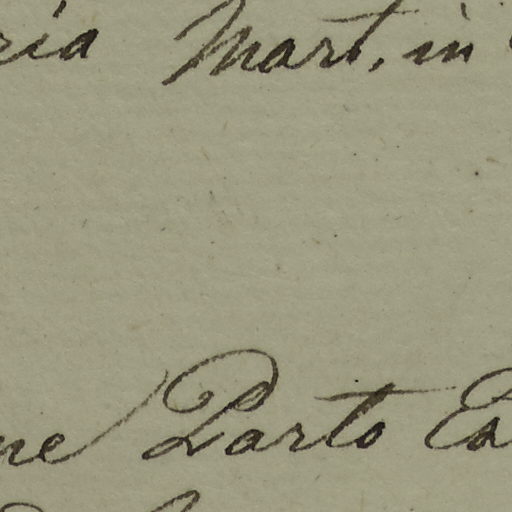 ria Mart, in
ne Parto Es